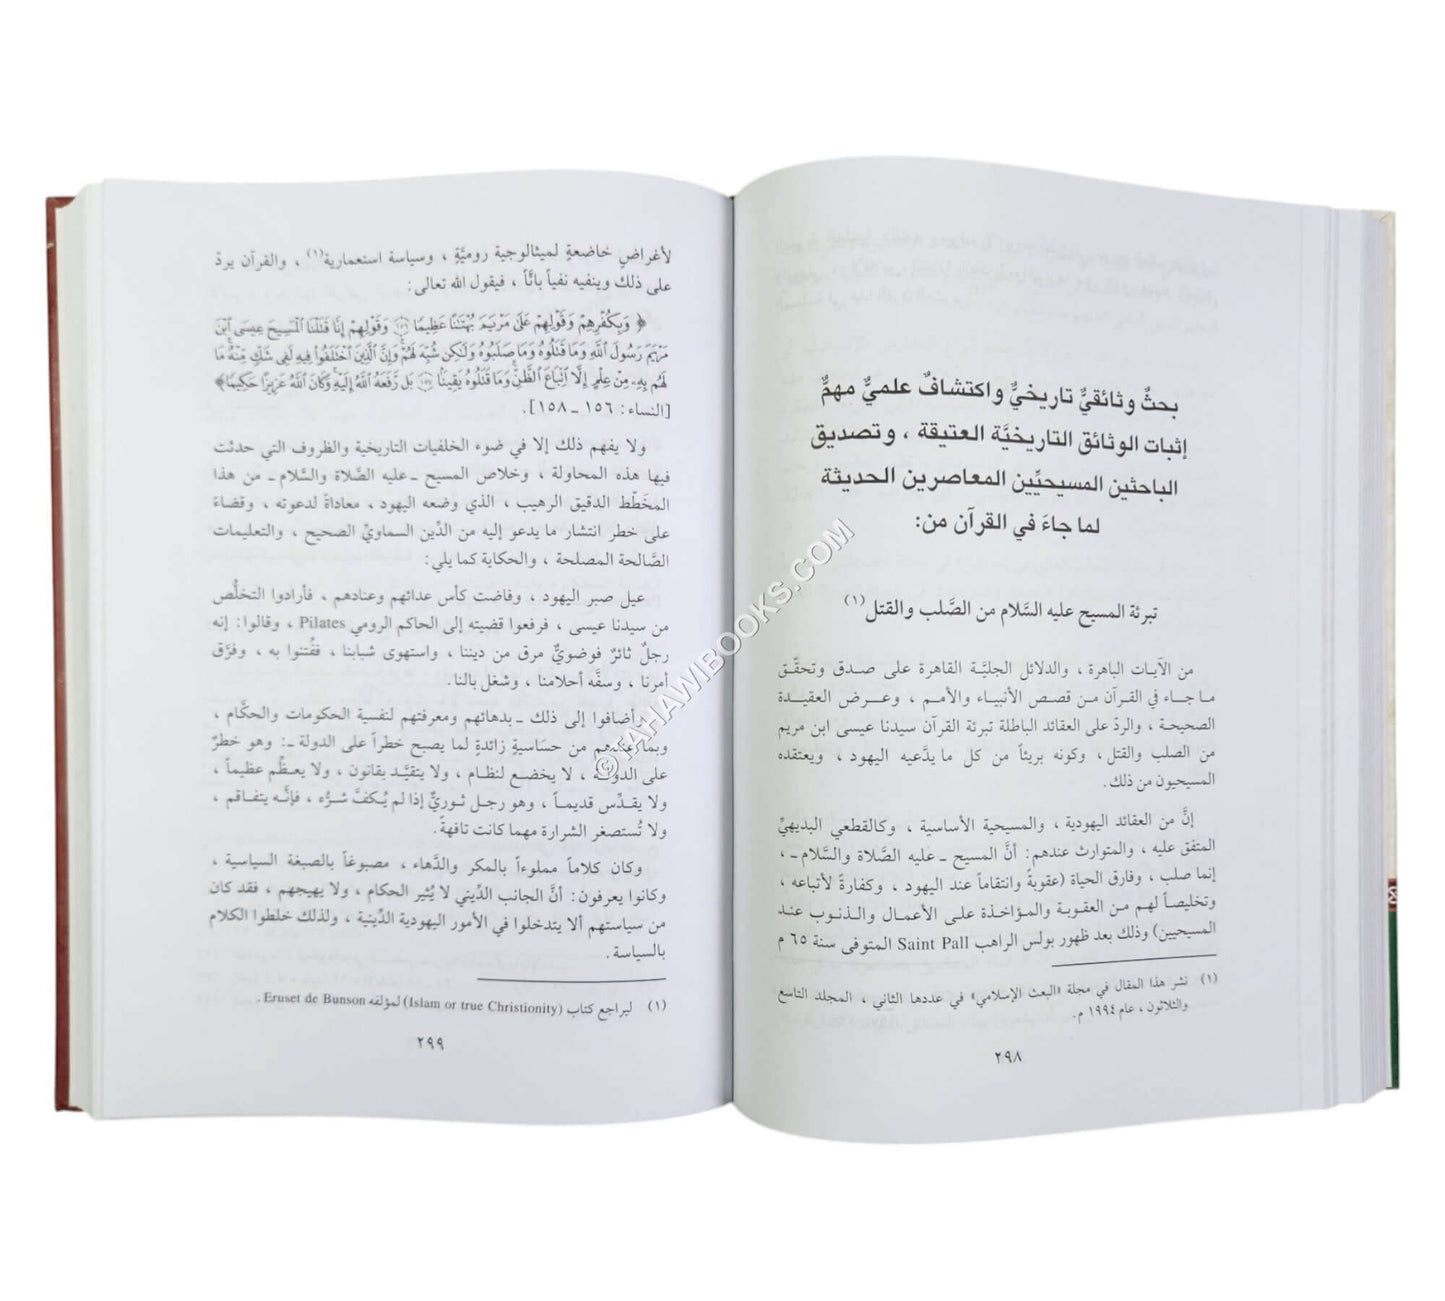 بحثٌ وثائقيٌّ تاريخيٌّ واكتشافٌ علميٌّ مهمٌّ
إثبات الوثائق التاريخيَّة العتيقة ، وتصديق
الباحثين المسيحيِّين المعاصرين الحديثة
لما جاءَ في القرآن من:
تبرئة المسيح عليه السَّلام من الصَّلب والقتل(١)
من الآيـات الباهرة ، والدلائل الجليَّـة القاهرة علـى صـدق وتحقّـق
مـا جـاء في القرآن مـن قصـص الأنبيـاء والأمـم ، وعــرض العقيـدة
الصحيحـة ، والردّ على العقائد الباطلة تبرئة القرآن سيدنا عيسى ابن مريم
من الصلب والقتل ، وكونه بريئاً من كل ما يدَّعيه اليهود ، ويعتقده
المسيحيون من ذلك.
إنَّ من العقائد اليهودية ، والمسيحية الأساسية ، وكالقطعي البديهيِّ
المتفق عليه ، والمتوارث عندهم: أنَّ المسيح ـ عليه الصَّلاة والسَّلام ـ ،
إنما صلب ، وفارق الحياة (عقوبةً وانتقاماً عند اليهود ، وكفارةً لأتباعه ،
وتخليصـاً لهـم مـن العقـوبـة والمـؤاخـذة علـى الأعمـال والـذنـوب عنـد
المسيحيين) وذلك بعد ظهور بولس الراهب Saint Pall المتوفى سنة ٦٥ م
(١) نشر هذا المقال في مجلة «البعث الإسلامي» في عددها الثاني ، المجلد التاسع
والثلاثون ، عام ١٩٩٤ م.
٢٩٨
لأغراضٍ خاضعةٍ لميثالوجية روميَّةٍ ، وسياسة استعمارية(١) ، والقرآن يردّ
على ذلك وينفيه نفياً باتّاً ، فيقول الله تعالى:
﴿ وَبِكُفْرِهِمْ وَقَوْلِهِمْ عَلَىٰ مَرْيَمَ بُهْتَٰنًا عَظِيمًا ۝١٥٦ وَقَوْلِهِمْ إِنَّا قَتَلْنَا ٱلْمَسِيحَ عِيسَى ٱبْنَ
مَرْيَمَ رَسُولَ ٱللَّهِ وَمَا قَتَلُوهُ وَمَا صَلَبُوهُ وَلَٰكِن شُبِّهَ لَهُمْ ۚ وَإِنَّ ٱلَّذِينَ ٱخْتَلَفُوا۟ فِيهِ لَفِى شَكٍّ مِّنْهُ ۚ مَا
لَهُم بِهِۦ مِنْ عِلْمٍ إِلَّا ٱتِّبَاعَ ٱلظَّنِّ ۚ وَمَا قَتَلُوهُ يَقِينًۢا ۝١٥٧ بَل رَّفَعَهُ ٱللَّهُ إِلَيْهِ ۚ وَكَانَ ٱللَّهُ عَزِيزًا حَكِيمًا﴾
[النساء: ١٥٦ ـ ١٥٨].
ولا يفهم ذلك إلا في ضوء الخلفيات التاريخية والظروف التي حدثت
فيها هذه المحاولة ، وخلاص المسيح ـ عليه الصَّلاة والسَّلام ـ من هذا
المخَطَّط الدقيق الرهيب ، الذي وضعه اليهود ، معاداةً لدعوته ، وقضاءً
على خطر انتشار ما يدعو إليه من الدِّين السماويِّ الصحيح ، والتعليمات
الصَّالحة المصلحة ، والحكاية كما يلي:
عيل صبر اليهود ، وفاضت كأس عدائهم وعنادهم ، فأرادوا التخلُّص
من سيدنا عيسى ، فرفعوا قضيته إلى الحاكم الرومي Pilates ، وقالوا: إنه
رجلٌ ثائرٌ فوضويٌّ مرق من ديننا ، واستهوى شبابنا ، ففُتنوا به ، وفرَّق
أمرنا ، وسفَّه أحلامنا ، وشغل بالنا.
وأضافوا إلى ذلك ـ بدهائهم ومعرفتهم لنفسية الحكومات والحكَّام ،
وبما عندهم من حسَاسيةٍ زائدةٍ لما يصبح خطراً على الدولة ـ: وهو خطرٌ
على الدولة ، لا يخضع لنظام ، ولا يتقيَّـد بقانون ، ولا يعـظِّم عظيماً ،
ولا يقـدِّس قديمـاً ، وهو رجـل ثـوريٌّ إذا لم يُـكفَّ شـرُّه ، فـإنَّـه يتفـاقم ،
ولا تُستصغر الشرارة مهما كانت تافهةً.
وكان كلاماً مملوءاً بالمكر والدَّهاء ، مصبوغاً بالصبغة السياسية ،
وكانوا يعرفون: أنَّ الجانب الدِّيني لا يُثير الحكام ، ولا يهيجهم ، فقد كان
من سياستهم ألا يتدخلوا في الأمور اليهودية الدِّينية ، ولذلك خلطوا الكلام
بالسياسة.
(١) ليراجع كتاب (Islam or true Christionity) لمؤلفه Eruset de Bunson .
٢٩٩
©TAHAWIBOOKS.COM